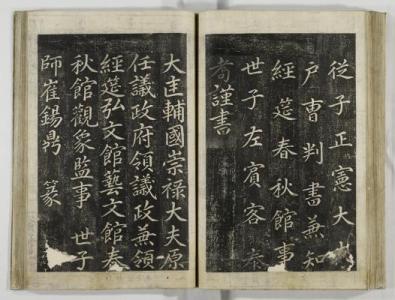 從子正憲大夫
戶曹判書兼知
經筵春秋館事
世子左賓客泰
耉謹書
大匡輔國崇祿大夫原
任議政府領議政兼領
經筵弘文館藝文館春
秋館觀象監事 世子
師崔錫鼎 篆